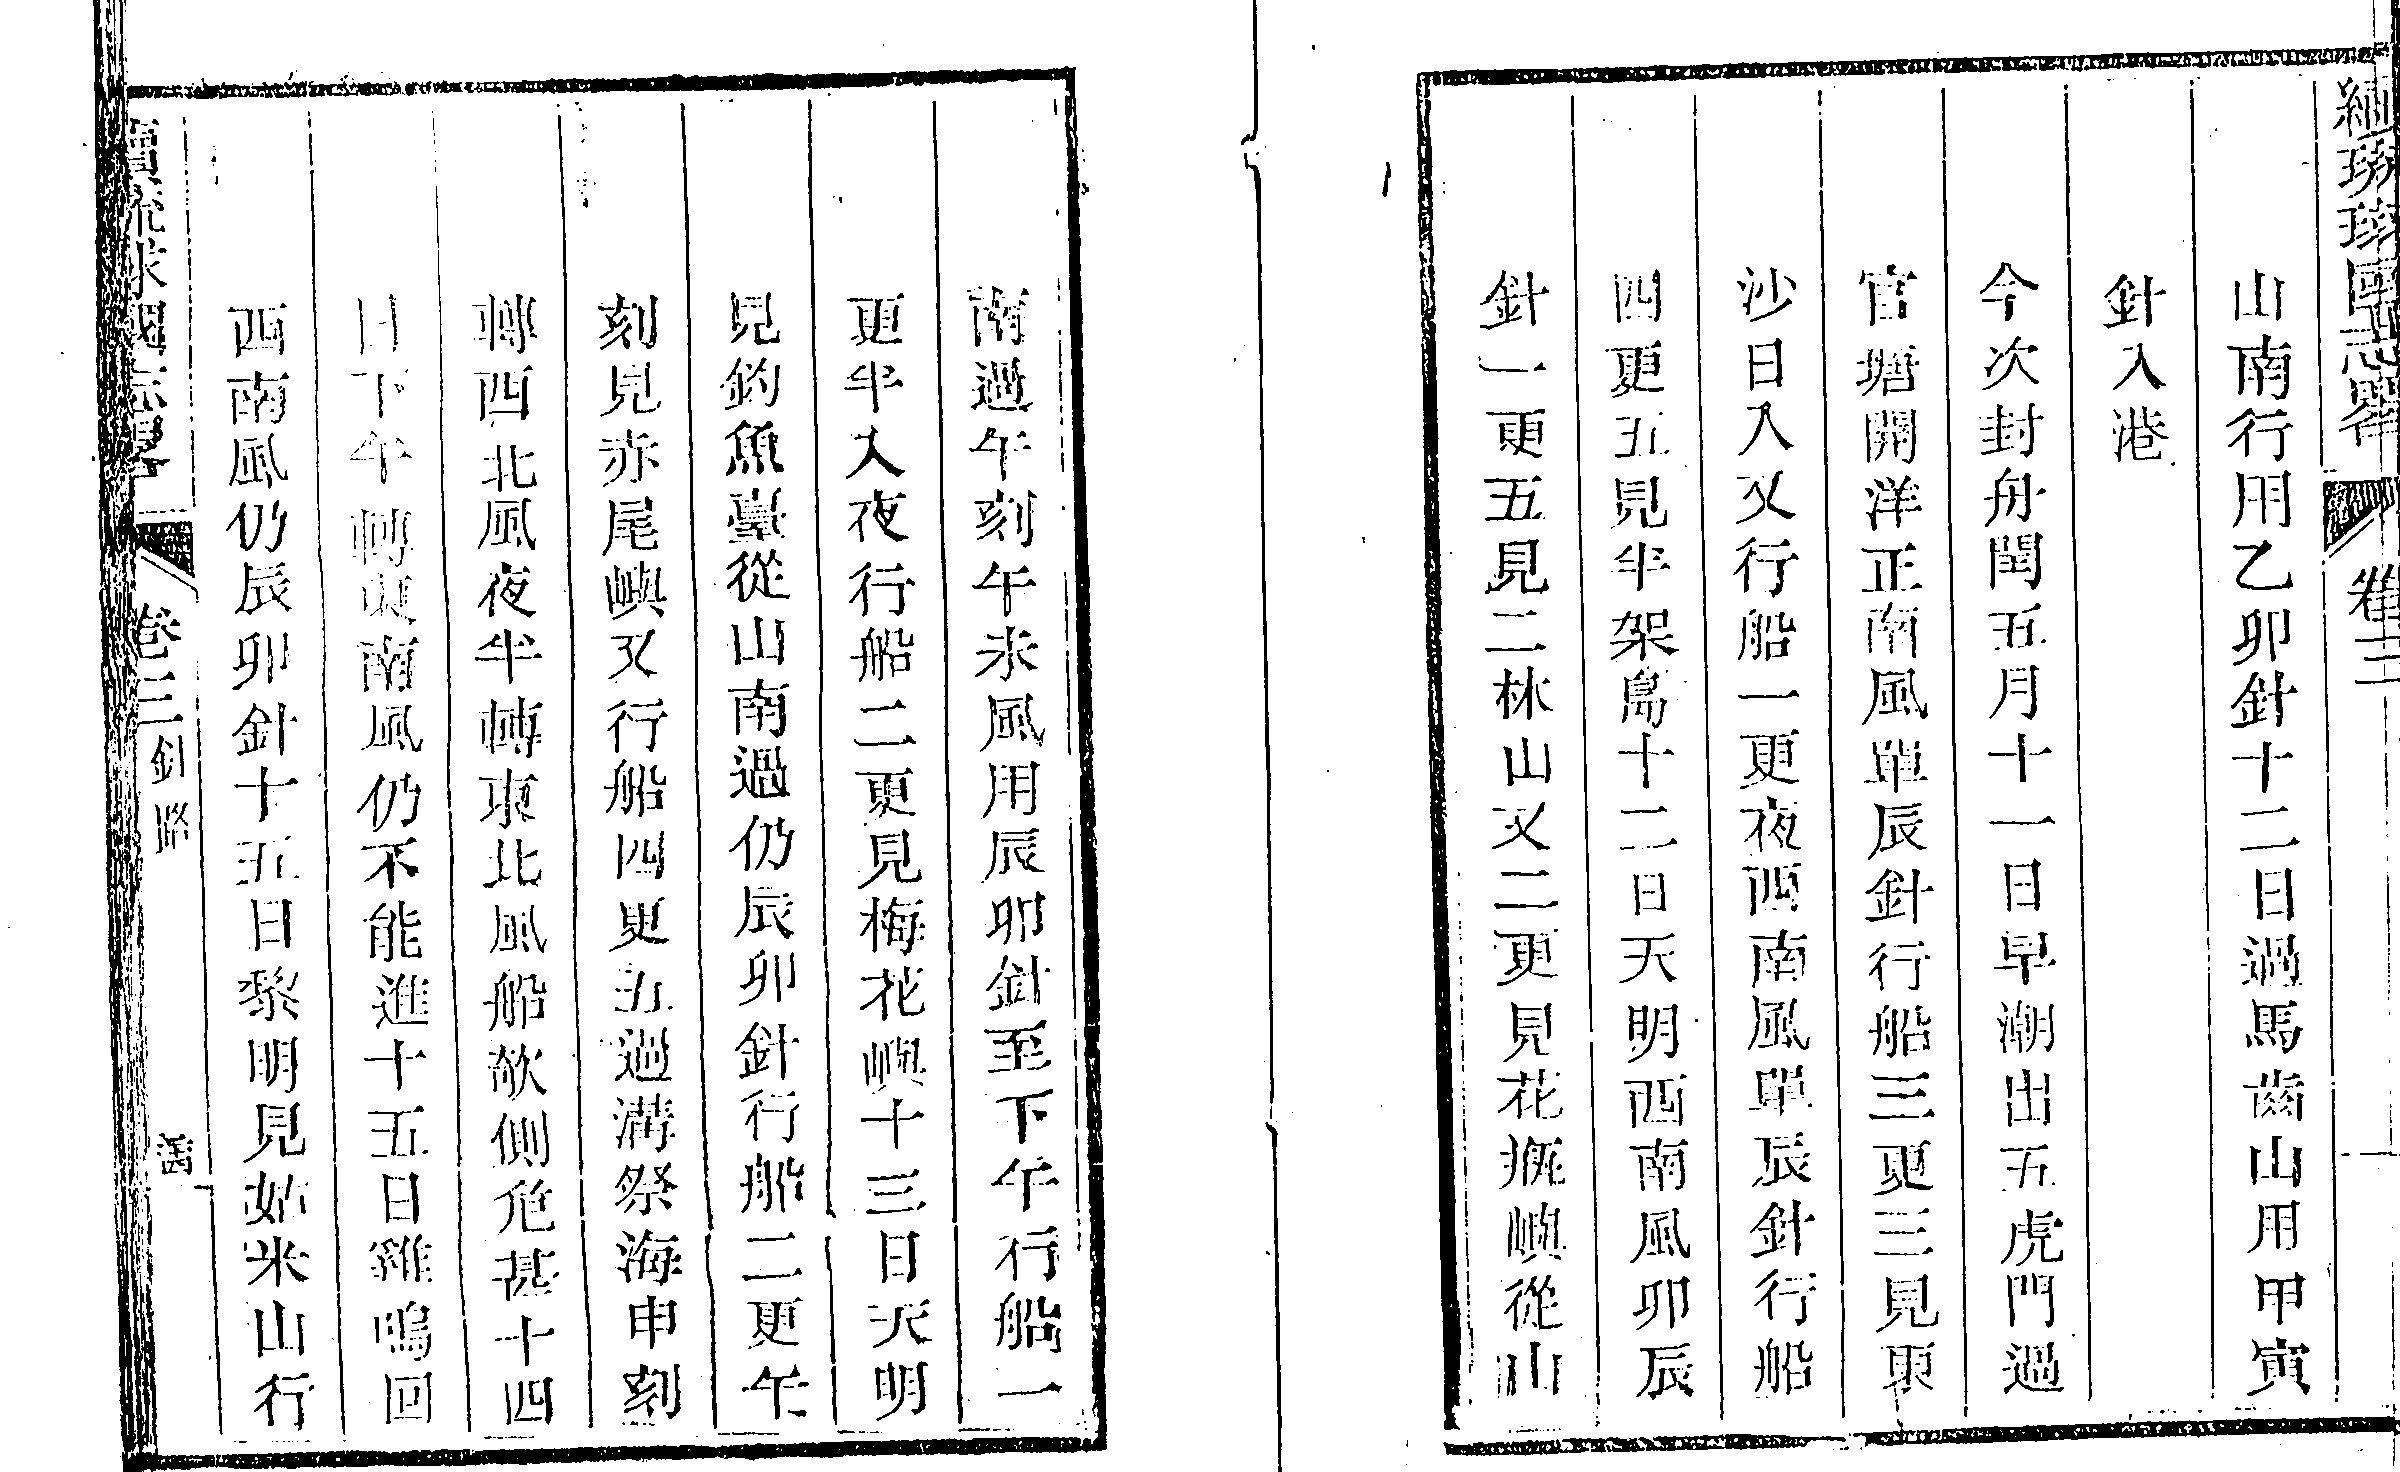 續琉球國志畧
卷三
山南行用乙卯針十二日過馬齒山用甲寅
針入港
今次封舟閏五月十一日早潮出五虎門過
官塘開洋正南風單辰針行船三更三見東
沙日入又行船一更夜西南風單辰針行船
四更五見半架島十二日天明西南風卯辰
針一更五見二林山又二更見花瓶嶼從山
南過午刻午未風用辰卯針至下午行船一
更半入夜行船二更見梅花嶼十三日天明
見釣魚臺從山南過仍辰卯針行船二更午
刻見赤尾嶼又行船四更五過溝祭海申刻
轉西北風夜半轉東北風船欹側危甚十四
日下午轉東南風仍不能進十五日雞鳴回
西南風仍辰卯針十五日黎明見姑米山行
續琉球國志畧
卷三 針路